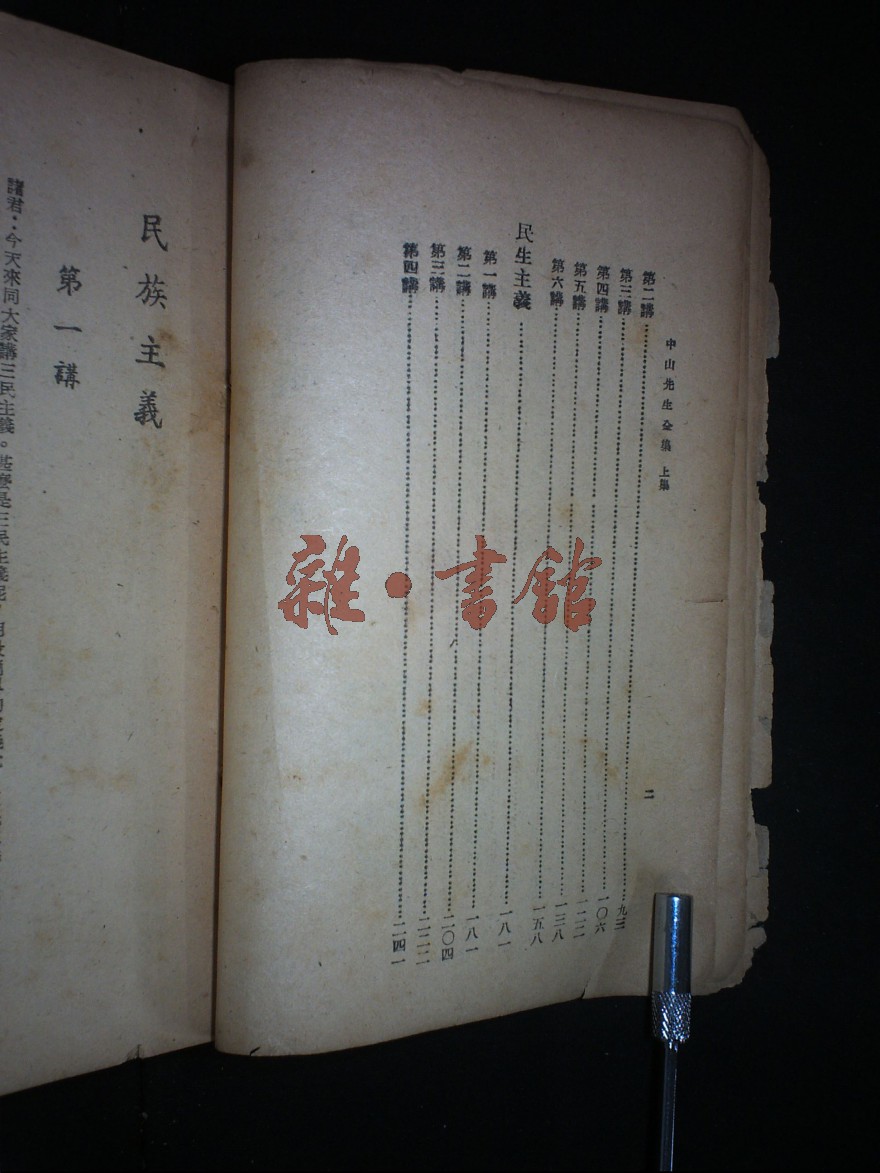 中山先生全集 上集 二
第二講……九三
第三講……一〇六
第四講……一二三
第五講……一三八
第六講……一五八
民生主義……一八一
第一講……一八一
第二講……二〇四
第三講……二二二
第四講……二四一
民族主義
第一講
諸君：今天來同大家講三民主義。甚麼是三民主義呢，用最簡單的定義
雜·書館